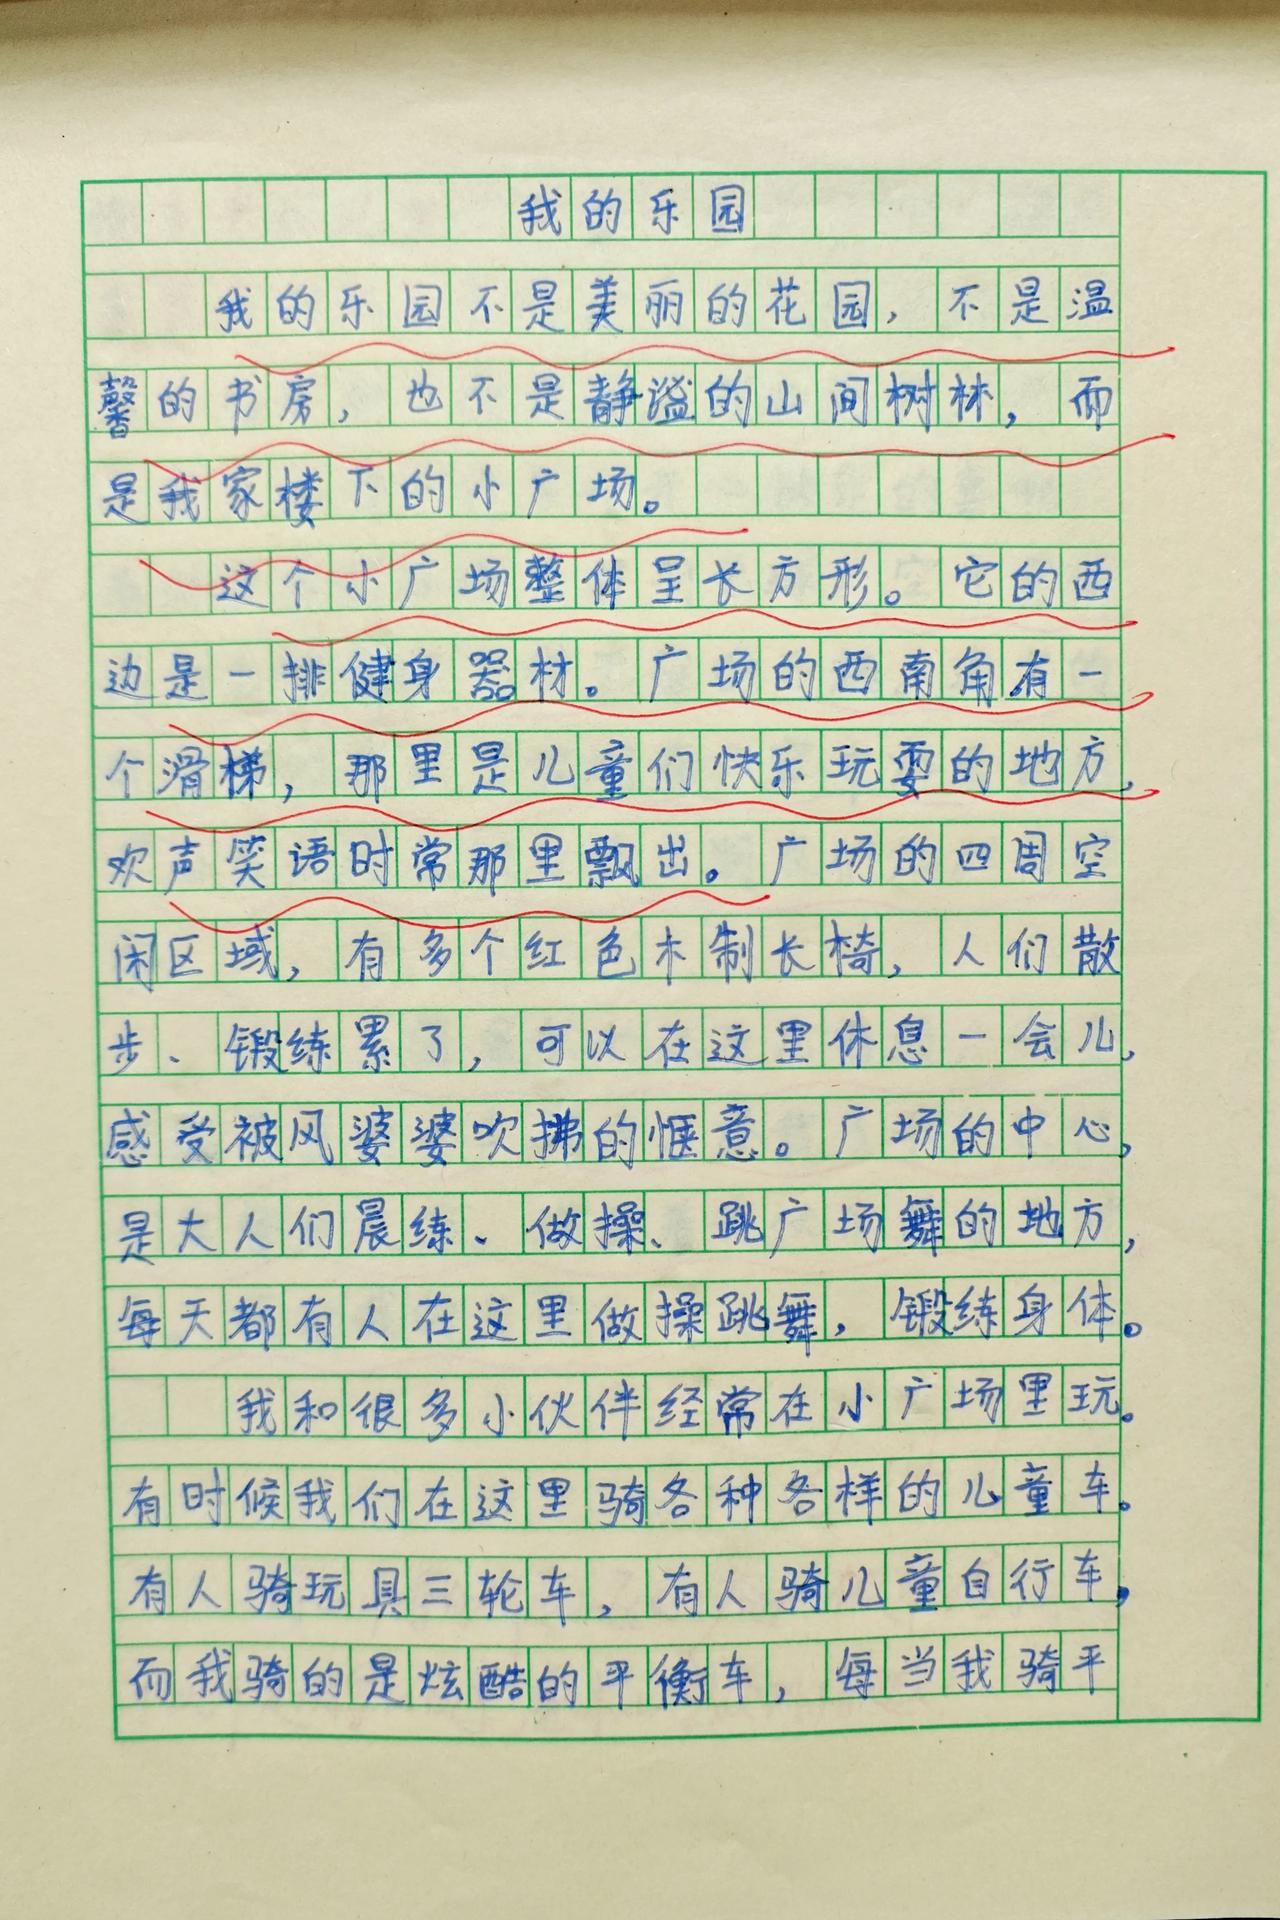 我的乐园
我的乐园不是美丽的花园，不是温
馨的书房，也不是静谧的山间树林，而
是我家楼下的小广场。
这个小广场整体呈长方形。它的西
边是一排健身器材。广场的西南角有一
个滑梯，那里是儿童们快乐玩耍的地方，
欢声笑语时常那里飘出。广场的四周空
闲区域，有多个红色木制长椅，人们散
步、锻练累了，可以在这里休息一会儿，
感受被风婆婆吹拂的惬意。广场的中心，
是大人们晨练、做操、跳广场舞的地方，
每天都有人在这里做操跳舞，锻练身体。
我和很多小伙伴经常在小广场里玩。
有时候我们在这里骑各种各样的儿童车。
有人骑玩具三轮车，有人骑儿童自行车，
而我骑的是炫酷的平衡车，每当我骑平